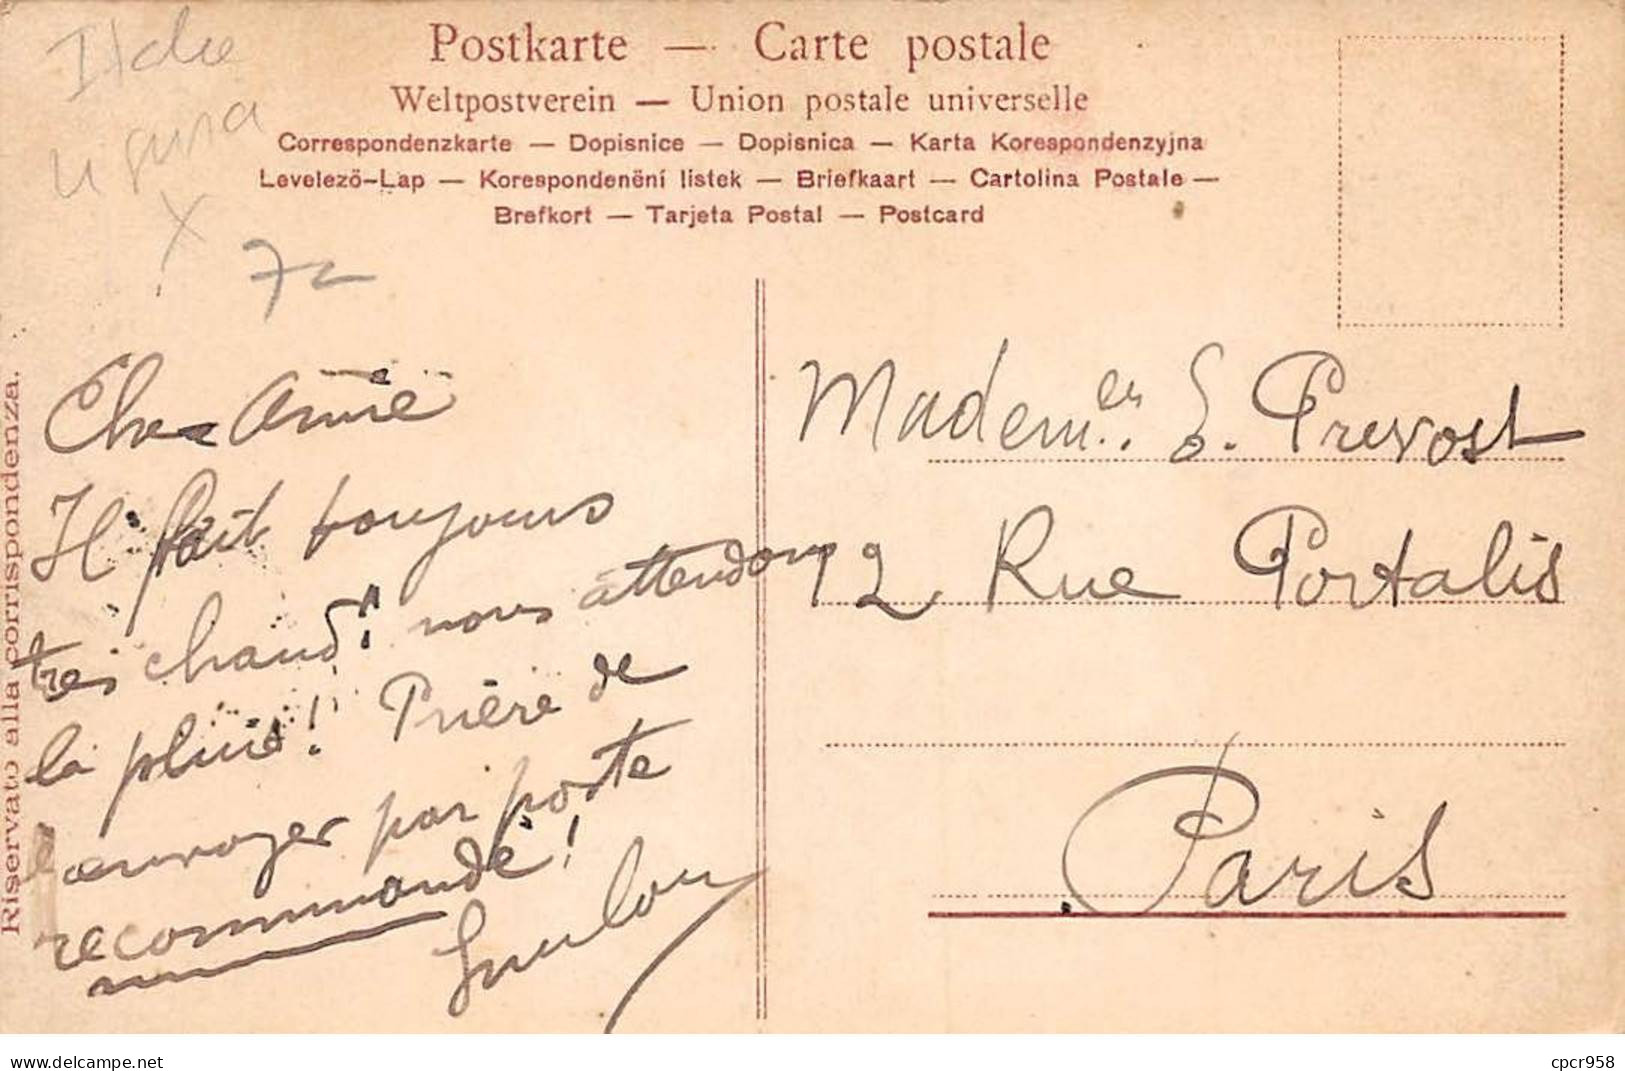 Italie
Liguria
X
72
Postkarte — Carte postale
Weltpostverein — Union postale universelle
Correspondenzkarte — Dopisnice — Dopisnica — Karta Korespondenzyjna
Levelező-Lap — Korespondenëni listek — Briefkaart — Cartolina Postale —
Brefkort — Tarjeta Postal — Postcard
Riservato alla corrispondenza.
Chère Amie
Il fait toujours
très chaud! nous attendons
la pluie! Prière de
l'envoyer par poste
recommandé!
Madem.
Prevost
12 Rue Portalis
Paris
cpcr958